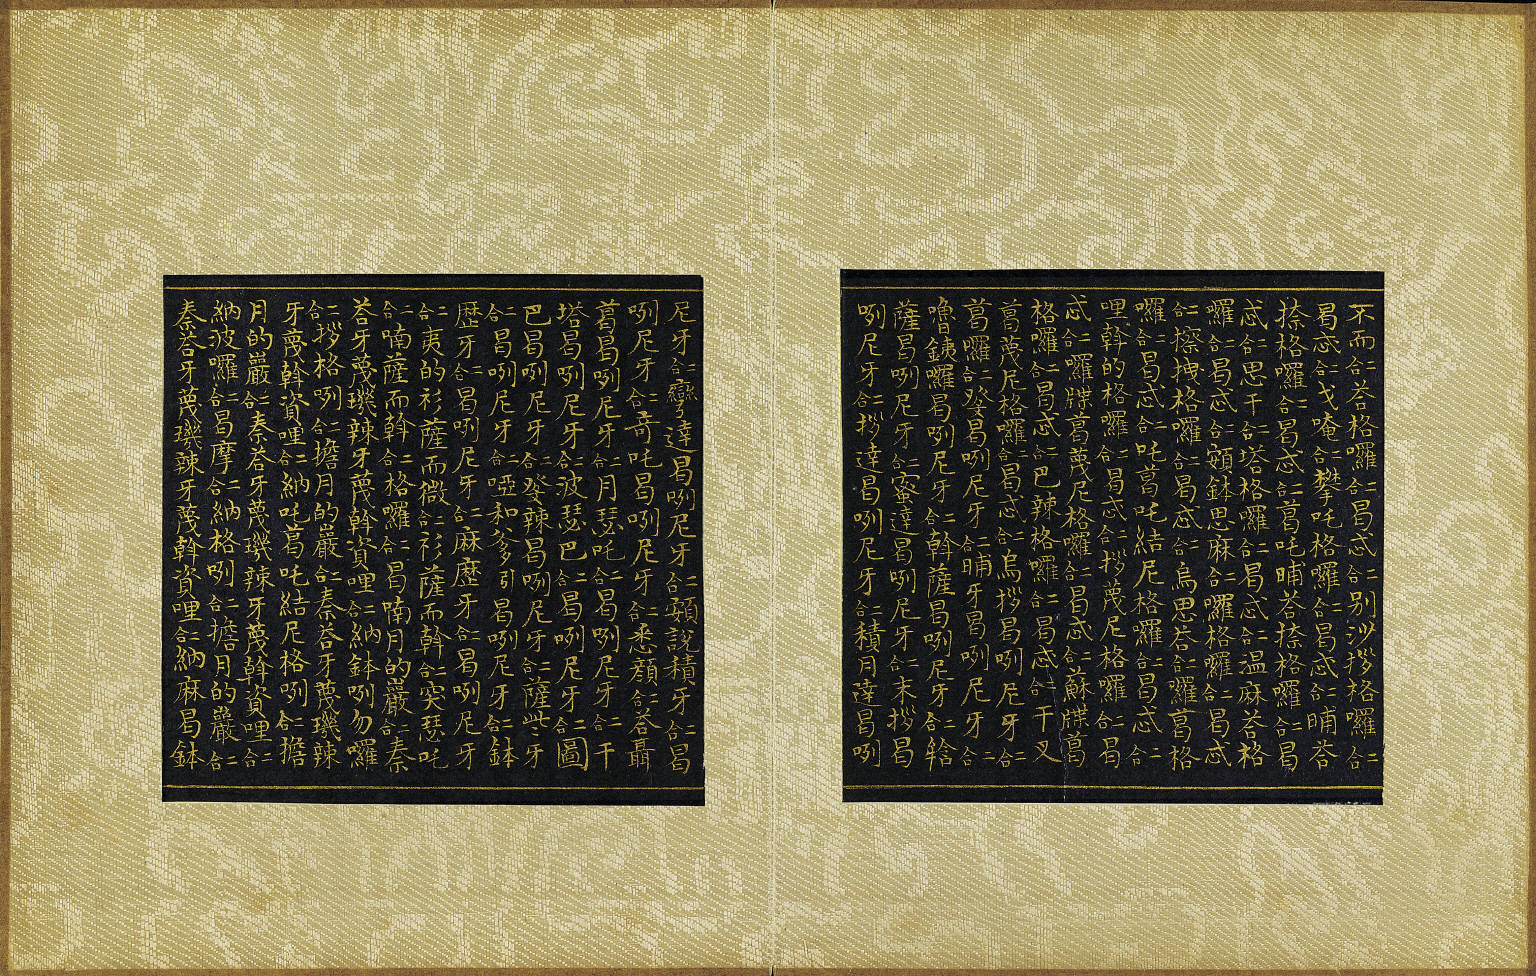 不而二合荅格囉二合曷忒二合别沙拶格囉二合
曷忒二合戈唵二合攀吒格囉二合曷忒二合晡荅
捺格囉二合曷忒二合葛吒晡荅捺格囉二合曷
忒二合思干二合塔格囉二合曷忒二合温麻荅格
囉二合曷忒二合頞鉢思麻二合囉格囉二合曷忒
二合擦拽格囉二合曷忒二合烏思荅二合囉葛格
囉二合曷忒二合吒葛吒結尼格囉二合曷忒二合
哩斡的格囉二合曷忒二合拶蔑尼格囉二合曷
忒二合囉牒曷蔑尼格囉二合曷忒二合蘇牒葛
格囉二合曷忒二合巴辣格囉二合曷忒二合干叉
葛蔑尼格囉二合曷忒二合烏拶曷咧尼牙二合
葛囉二合癹曷咧尼牙二合晡牙曷咧尼牙二合
嚕銕囉曷咧尼牙二合斡薩曷咧尼牙二合
薩曷咧尼牙二合蜜達曷咧尼牙二合末拶曷
咧尼牙二合拶達曷咧尼牙二合積月達曷咧
尼牙二合達曷咧尼牙二合頞説積牙二合曷
咧尼牙二合竒吒曷咧尼牙二合悉顔二合荅聶
葛曷咧尼牙二合月瑟吒二合曷咧尼牙二合干
塔曷咧尼牙二合波瑟巴二合曷咧尼牙二合圖
巴曷咧尼牙二合癹辣曷咧尼牙二合薩牙
二合曷咧尼牙二合啞和爹引曷咧尼牙二合鉢
歴牙二合曷咧尼牙二合麻歴牙二合曷咧尼牙
二合夷的衫薩而微二合衫薩而斡二合突瑟吒
二合喃薩而斡二合格囉二合曷喃月的巖二合秦
荅牙蔑璣辣牙蔑斡資哩二合納鉢咧勿囉
二合拶格咧二合擔月的巖二合秦荅牙蔑璣辣
牙蔑斡資哩二合納吒葛吒結尼格咧二合擔
月的巖二合秦荅牙蔑璣辣牙蔑斡資哩二合
納波囉二合曷摩二合納格咧二合擔月的巖二合
秦荅牙蔑璣辣牙蔑斡資哩二合納麻曷鉢